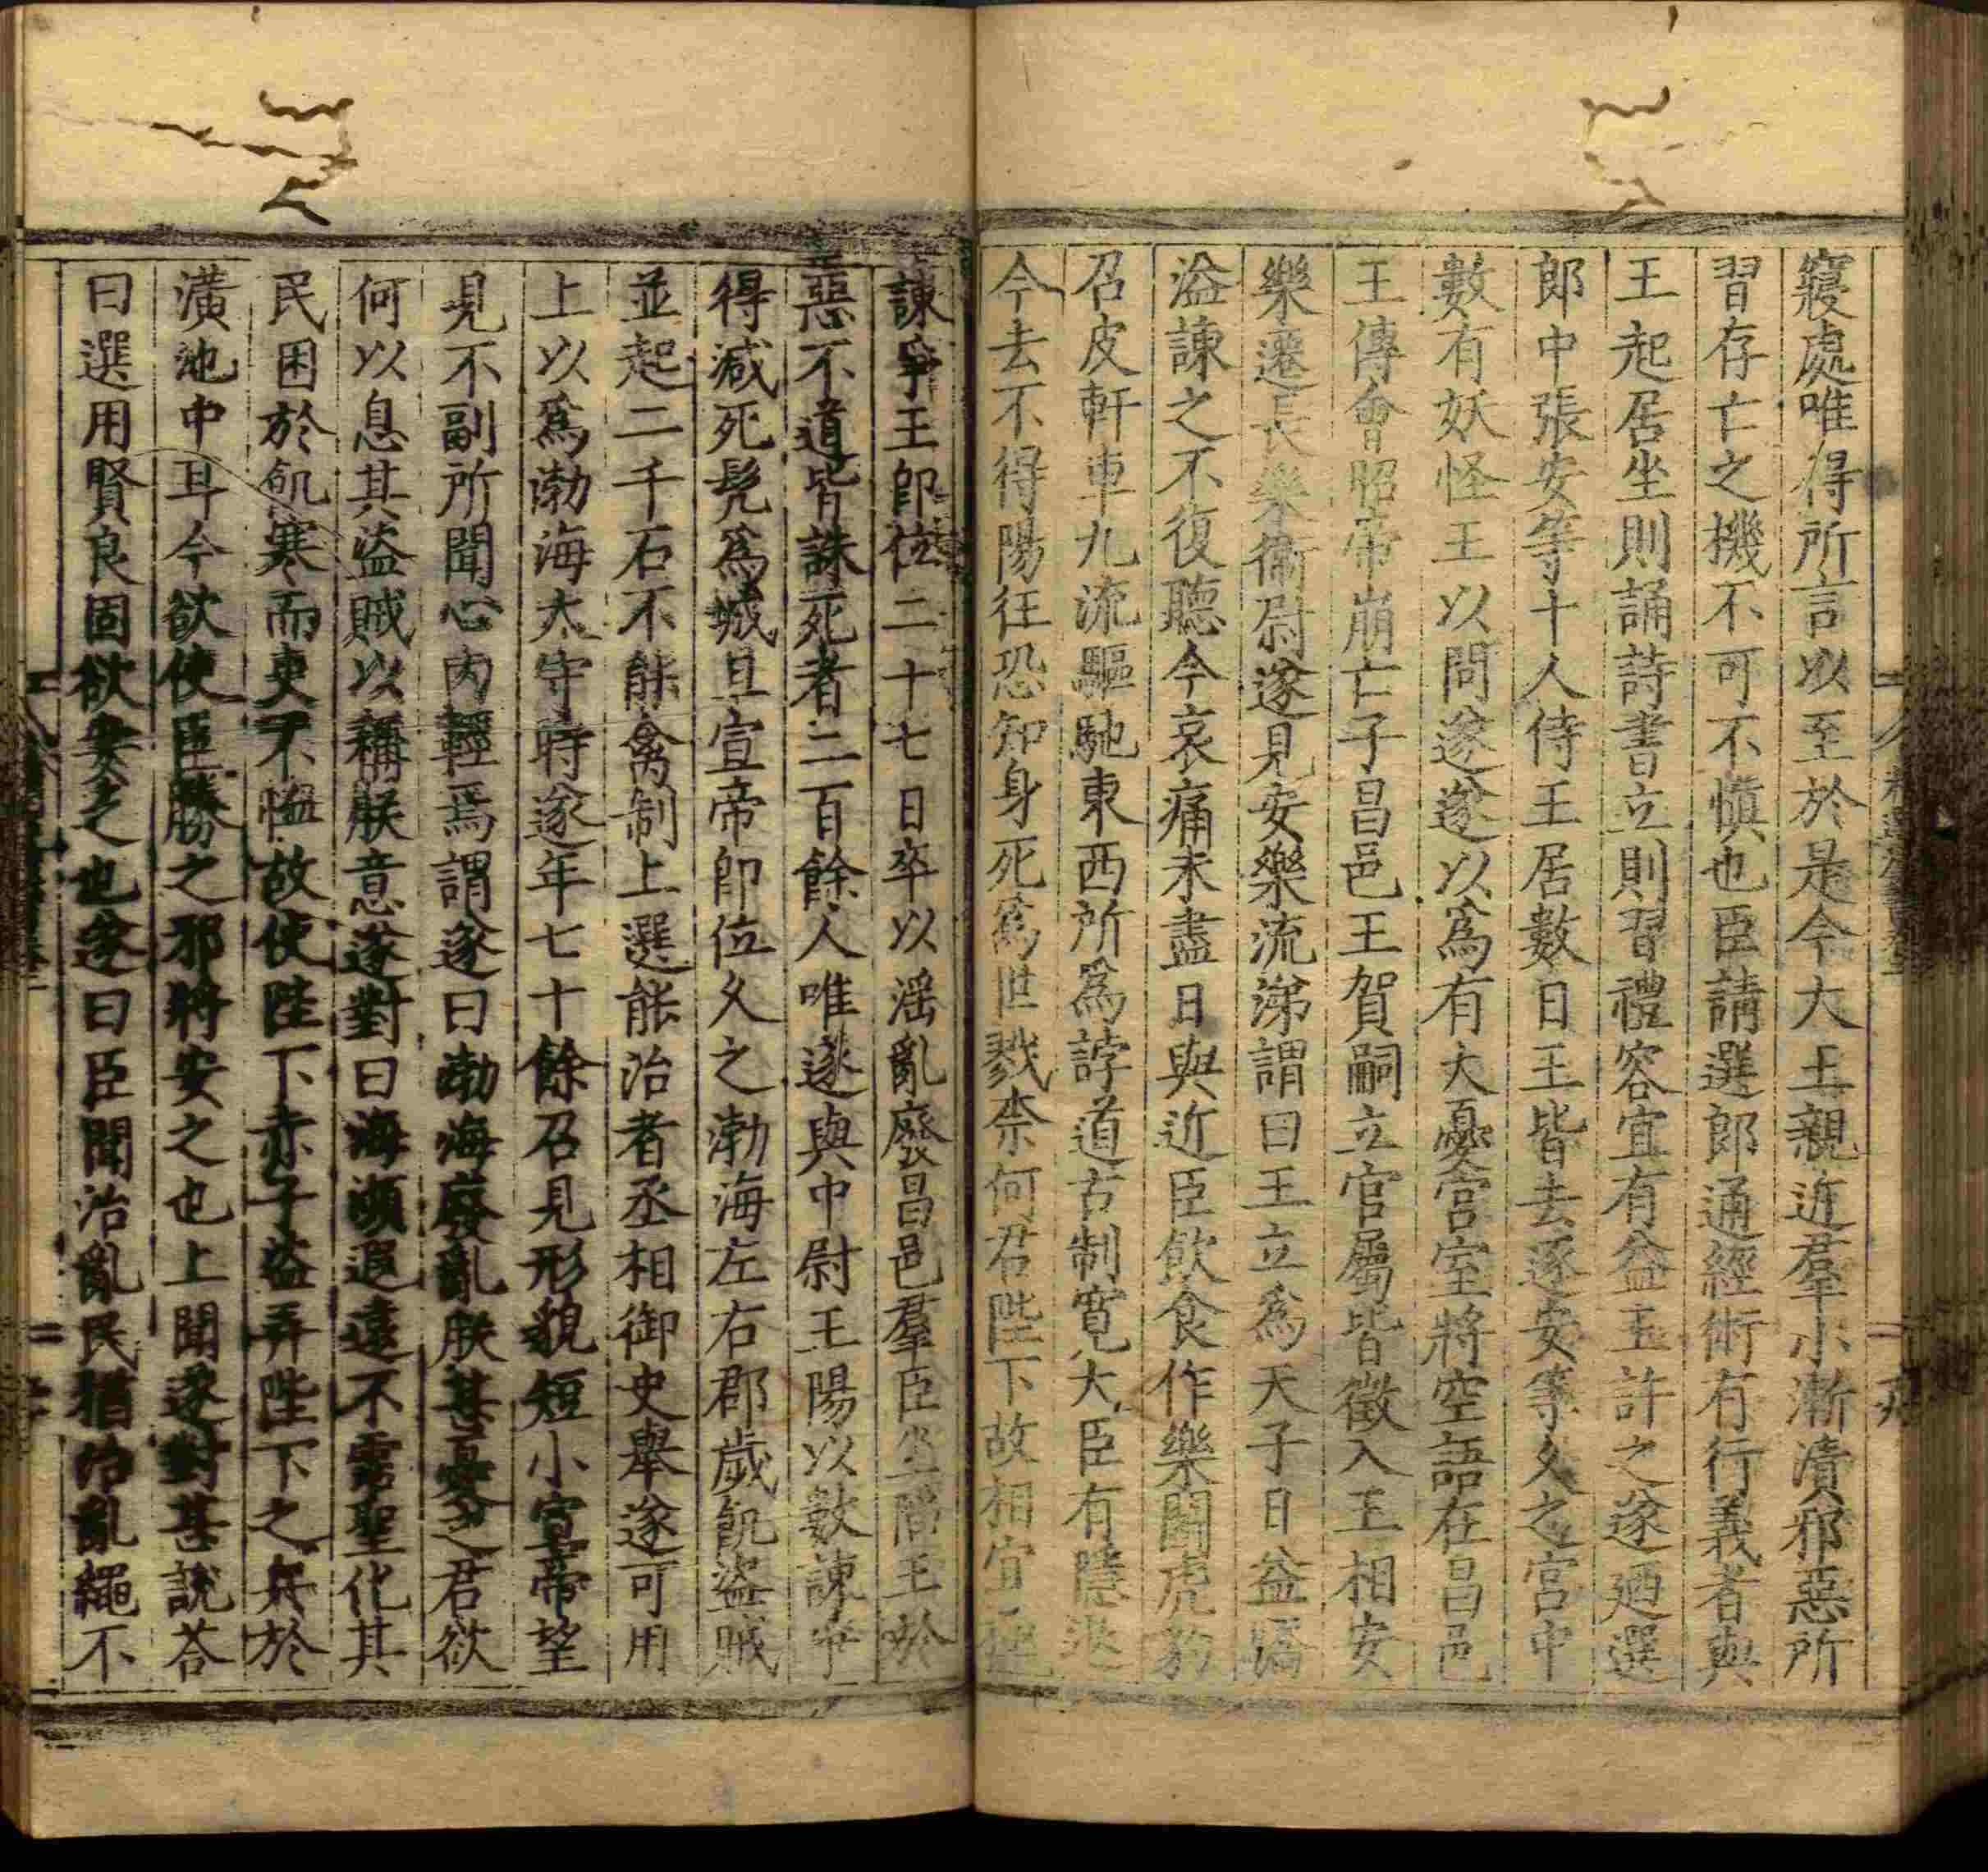 寢處唯得所言以至於是今大王親近羣小漸漬邪惡所
習存亡之機不可不慎也臣請選郎通經術有行義者與
王起居坐則誦詩書立則習禮容宜有益王許之遂廼選
郎中張安等十人侍王居數日王皆去逐安等久之宮中
數有妖怪王以問遂遂以爲有大憂宮室將空語在昌邑
王傳會昭帝崩亡子昌邑王賀嗣立官屬皆徵入王相安
樂遷長樂衞尉遂見安樂流涕謂曰王立爲天子日益驕
溢諫之不復聽今哀痛未盡日與近臣飲食作樂鬬虎豹
召皮軒車九流驅馳東西所爲誖道古制寬大臣有隱退
今去不得陽狂恐知身死爲世戮柰何君陛下故相宜極
諫爭王卽位二十七日卒以淫亂廢昌邑羣臣坐陷王於
惡不道皆誅死者二百餘人唯遂與中尉王陽以數諫爭
得減死髡爲城旦宣帝卽位久之渤海左右郡歲飢盜賊
並起二千石不能禽制上選能治者丞相御史舉遂可用
上以爲渤海太守時遂年七十餘召見形貌短小宣帝望
見不副所聞心內輕焉謂遂曰渤海廢亂朕甚憂之君欲
何以息其盜賊以稱朕意遂對曰海瀕遐遠不霑聖化其
民困於飢寒而吏不恤故使陛下赤子盜弄陛下之兵於
潢池中耳今欲使臣勝之邪將安之也上聞遂對甚說荅
曰選用賢良固欲安之也遂曰臣聞治亂民猶治亂繩不